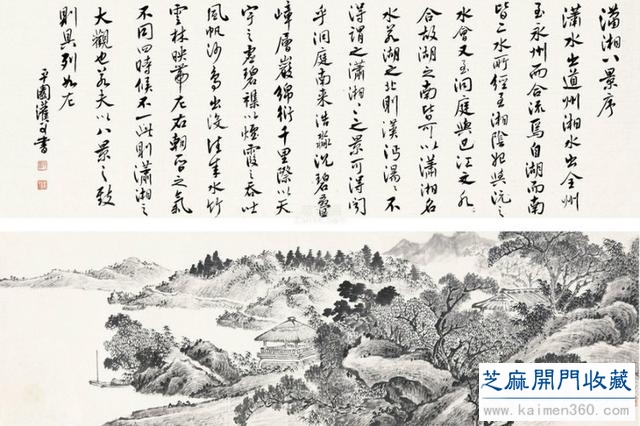 瀟湘八景序
瀟水出道州湘水出全州
至永州而合流焉自湖而南
皆二水所經至湘陰始與沅之
水會又至洞庭與巴江之水
合故湖之南皆可以瀟湘名
水若湖之北則漢沔湯湯不
得謂之瀟湘之景可得聞
乎洞庭南來浩淼沉碧疊
嶂層巖綿衍千里際以天
宇之虛碧雜以煙霞之吞吐
風帆沙鳥出沒往來水竹
雲林映帶左右朝昏之氣
不同四時候不一此則瀟湘之
大觀也若夫以八景之致
則具列如左
書
芝麻開門收藏
www.kaimen360.com